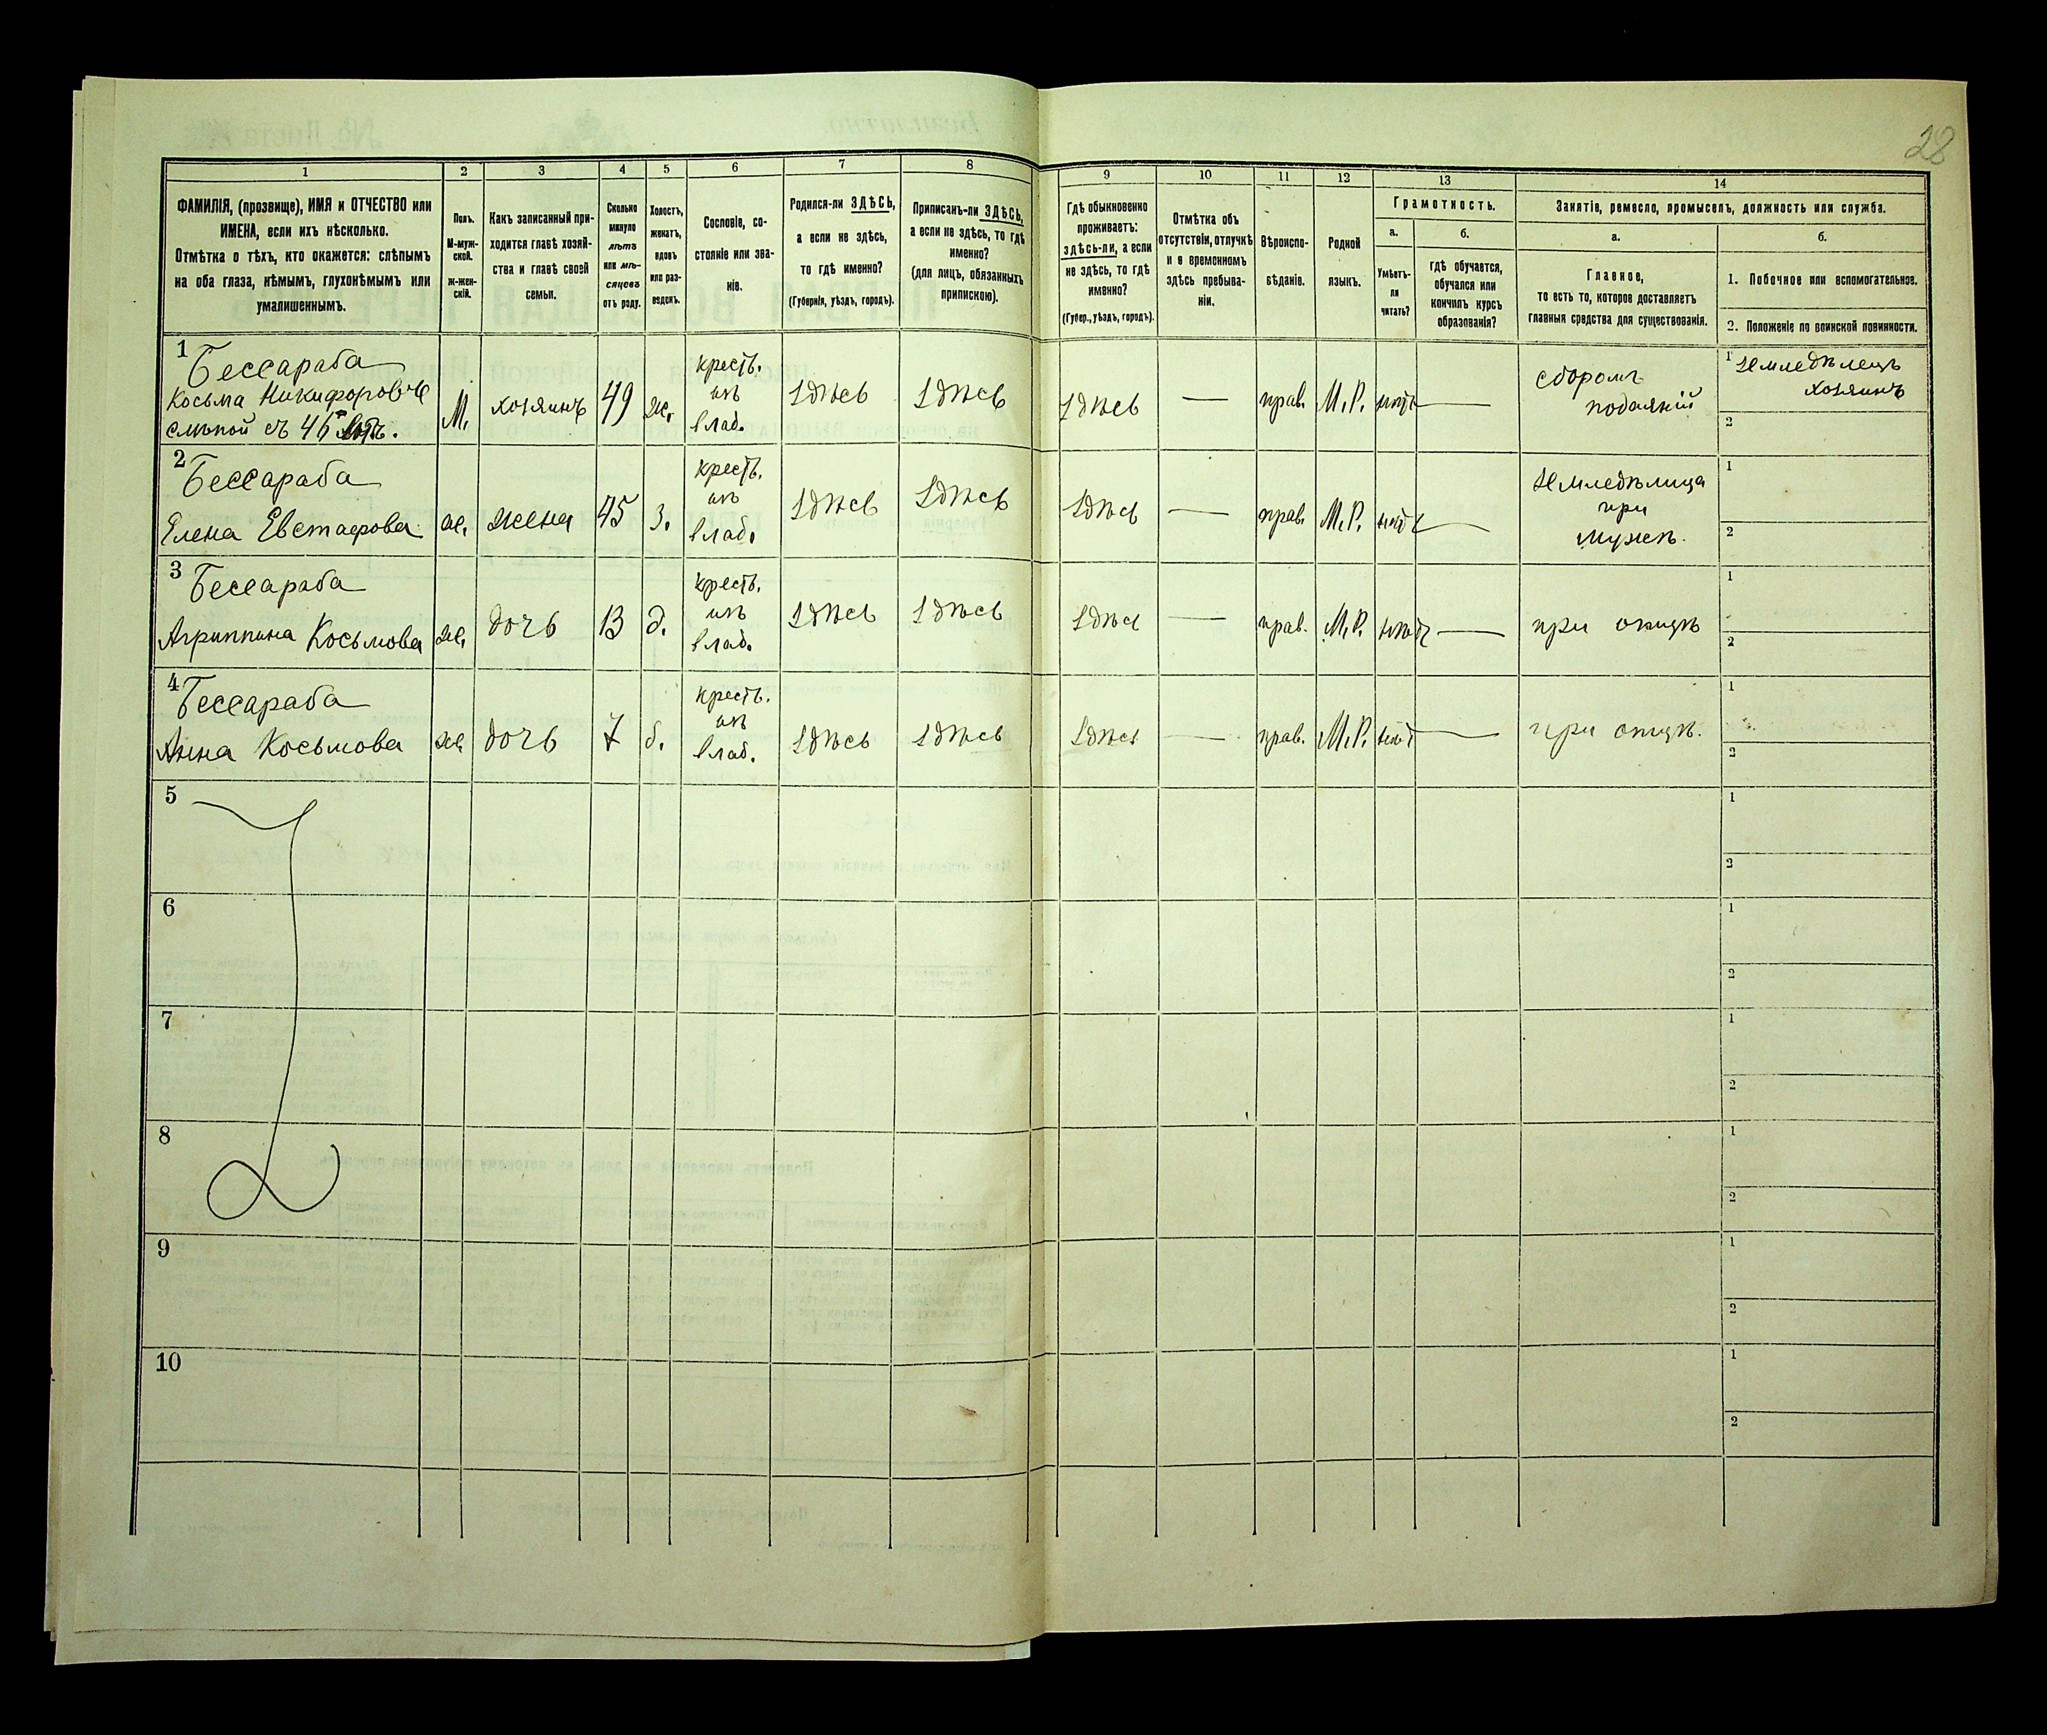 28
1
2
3
4
5
6
7
8
ФАМИЛІЯ, (прозвище), ИМЯ и ОТЧЕСТВО или
ИМЕНА, если ихъ нѣсколько.
Отмѣтка о тѣхъ, кто окажется: слѣпымъ
на оба глаза, нѣмымъ, глухонѣмымъ или
умалишеннымъ.
Полъ.
М-муж-
ской.
Ж-жен-
скій.
Какъ записанный при-
ходится главѣ хозяй-
ства и главѣ своей
семьи.
Сколько
минуло
лѣтъ
или мѣ-
сяцевъ
отъ роду.
Холостъ,
женатъ,
вдовъ
или раз-
веденъ.
Сословіе, со-
стояніе или зва-
ніе.
Родился-ли ЗДѢСЬ,
а если не здѣсь,
то гдѣ именно?
(Губернія, уѣздъ, городъ).
Приписанъ-ли ЗДѢСЬ,
а если не здѣсь, то гдѣ
именно?
(для лицъ, обязанныхъ
припискою).
9
10
11
12
13
14
Гдѣ обыкновенно
проживаетъ:
здѣсь-ли, а если
не здѣсь, то гдѣ
именно?
(Губер., уѣздъ, городъ).
Отмѣтка объ
отсутствіи, отлучкѣ
и о временномъ
здѣсь пребыва-
ніи.
Вѣроиспо-
вѣданіе.
Родной
языкъ.
Грамотность.
а.
Умѣетъ-
ли
читать?
б.
гдѣ обучается,
обучался или
кончилъ курсъ
образованія?
Занятіе, ремесло, промыселъ, должность или служба.
а.
Главное,
то есть то, которое доставляетъ
главныя средства для существованія.
б.
1. Побочное или вспомогательное.
2. Положеніе по воинской повинности.
1
Бессараба
Косьма Никифоровъ
слѣпой съ 45 лѣтъ.
М.
хозяинъ
49
ж.
крест.
изъ
влад.
здѣсь
здѣсь
здѣсь
—
прав.
М.Р.
нѣтъ
—
сборомъ
подаяній
1
земледѣлецъ
хозяинъ
2
2
Бессараба
Елена Евстафова
ж.
жена
45
з.
крест.
изъ
влад.
здѣсь
здѣсь
здѣсь
—
прав.
М.Р.
нѣтъ
—
земледѣлица
при
мужѣ.
1
2
3
Бессараба
Агриппина Косьмова
ж.
дочь
13
д.
крест.
изъ
влад.
здѣсь
здѣсь
здѣсь
—
прав.
М.Р.
нѣтъ
—
при отцѣ
1
2
4
Бессараба
Анна Косьмова
ж.
дочь
7
крест.
изъ
влад.
здѣсь
здѣсь
здѣсь
—
прав.
М.Р.
нѣтъ
—
при отцѣ.
1
2
5
1
2
6
1
2
7
1
2
8
1
2
9
1
2
10
1
2